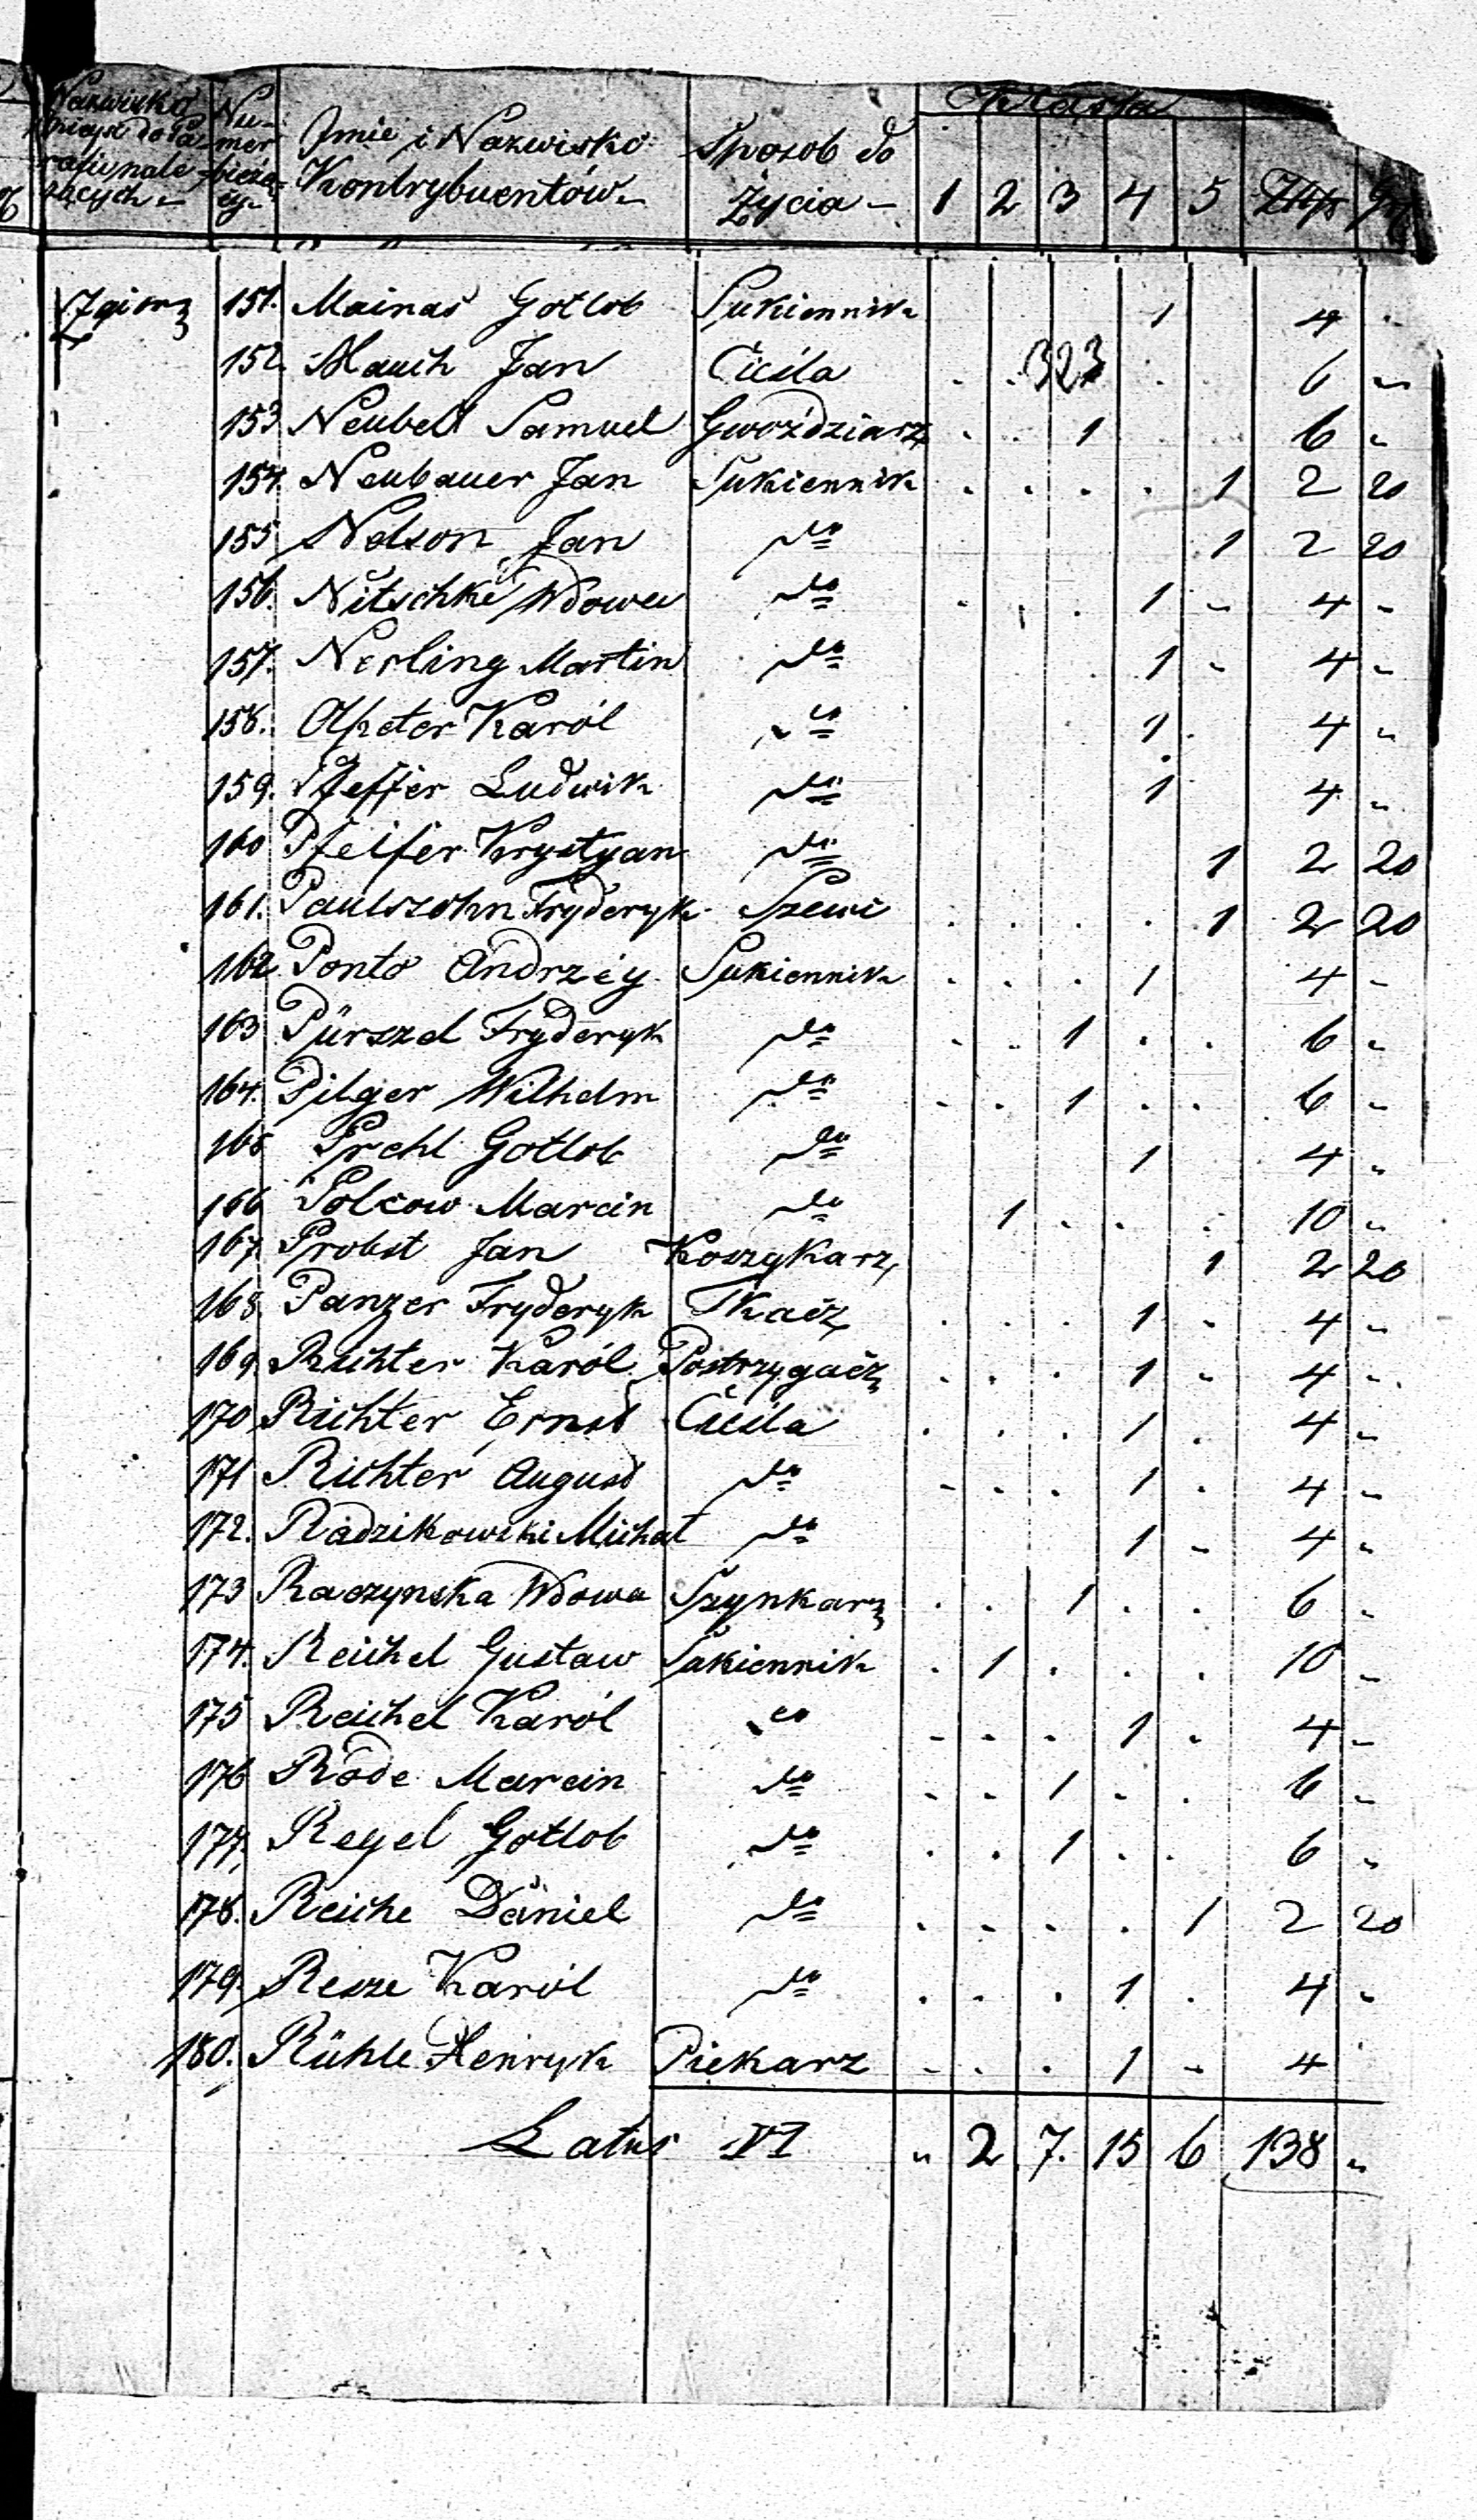 Nazwisko
mieysc do Pa-
rafii nale-
żących
Nu-
mer
bieżą-
cy
Jmie i Nazwisko
Kontrybuentów
Sposob do
Życia
Klassa
1 2 3 4 5 Złp gr
Zgierz 151. Mainas Gotlob Sukiennik 1 4 "
152. Mauch Jan Cieśla . . 323 . . 6 "
153 Neubelt Samuel Gwoździarz . . 1 6 "
154. Neubauer Jan Sukiennik . . . . 1 2 20
155 Nelson Jan do 1 2 20
156. Nitschke Wdowa do . . . 1 - 4 -
157. Nerling Martin do 1 - 4 -
158. Olpeter Karól do 1 . 4 "
159. Pfeffer Ludwik do 1 4 "
160 Pfeifer Krystyan do 1 2 20
161. Paulszohn Fryderyk Szewc . . . . 1 2 20
162 Ponto Andrzéy Sukiennik . . . 1 4 -
163 Pürszel Fryderyk do . . 1 . . 6 -
164. Pilger Wilhelm do . . 1 . . 6 -
165 Prehl Gotlob do 1 4 "
166 Polcow Marcin do 1 . . . 10 "
167. Probst Jan Koszykarz 1 2 20
168. Panzer Fryderyk Tkacz . . . 1 - 4 -
169. Richter Karól Postrzygacz . . . 1 - 4 -
170 Richter Ernst Cieśla . . . 1 . 4 -
171 Richter August do . . . 1 . 4 -
172. Radzikowski Michał do 1 - 4 "
173 Raczynska Wdowa Szynkarz . . 1 . . 6 -
174. Reichel Gustaw Sukiennik . 1 . . . 10 -
175 Reichel Karól do . . . 1 . 4 -
176 Rode Marcin do . . 1 . . 6 -
177. Regel Gotlob do . . 1 . . 6 "
178. Reiche Daniel do . . . . 1 2 20
179. Resze Karól do . . . 1 . 4 "
180. Rühle Henryk Piekarz . . . 1 - 4
Latus VI " 2 7. 15 6 138 "